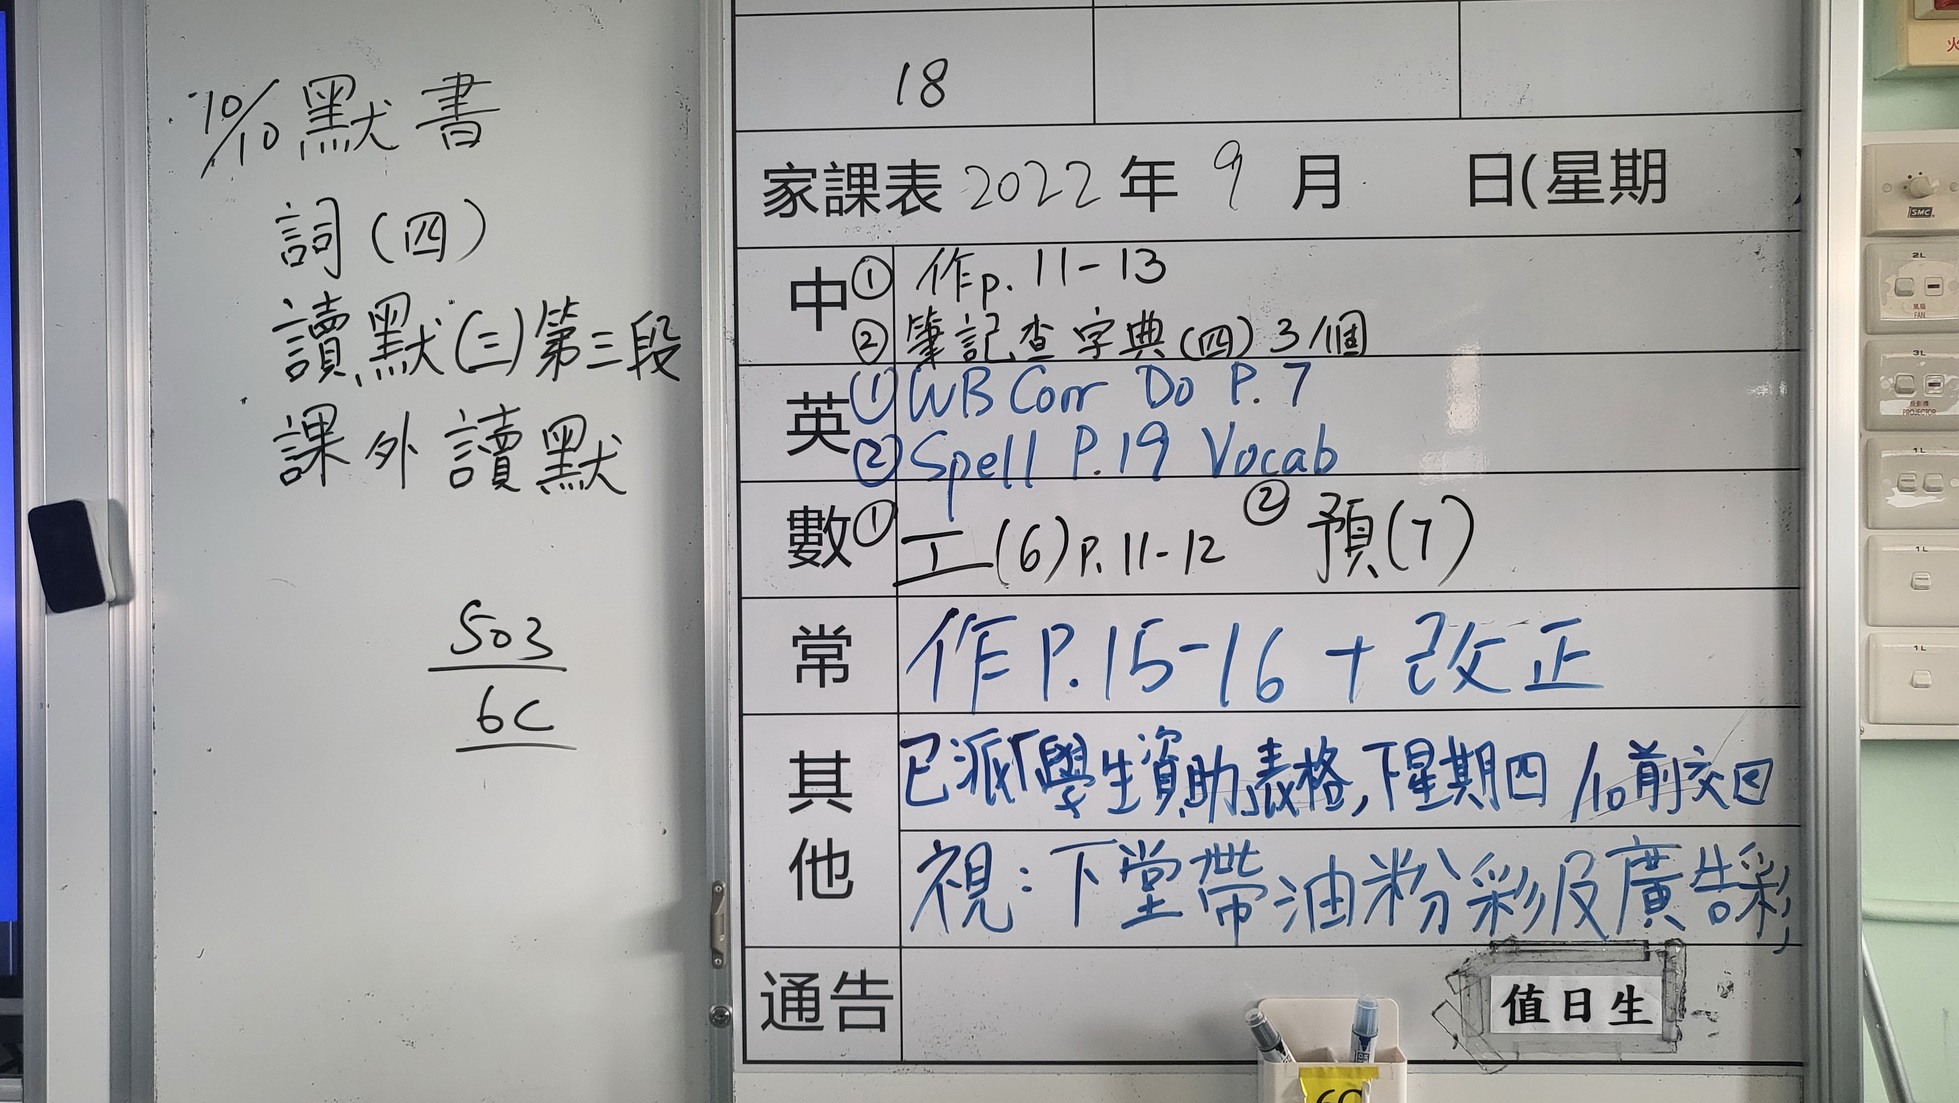 10/10 默書
詞(四)
讀默(三)第三段
課外讀默
503
6C
18
家課表 2022 年 9 月 日(星期
中 ① 作p. 11-13
② 筆記查字典(四) 3/個
英 ① WB Corr Do P. 7
② Spell P.19 Vocab
數 ① 工(6)P. 11-12 ② 預(7)
常 作P.15-16 + 改正
其他 已派「學生資助」表格,下星期四 /10前交回
視:下堂帶油粉彩及廣告彩
通告
值日生
SMC
2L
風扇
FAN
3L
投影機
PROJECTOR
1L
1L
1L
火
6C